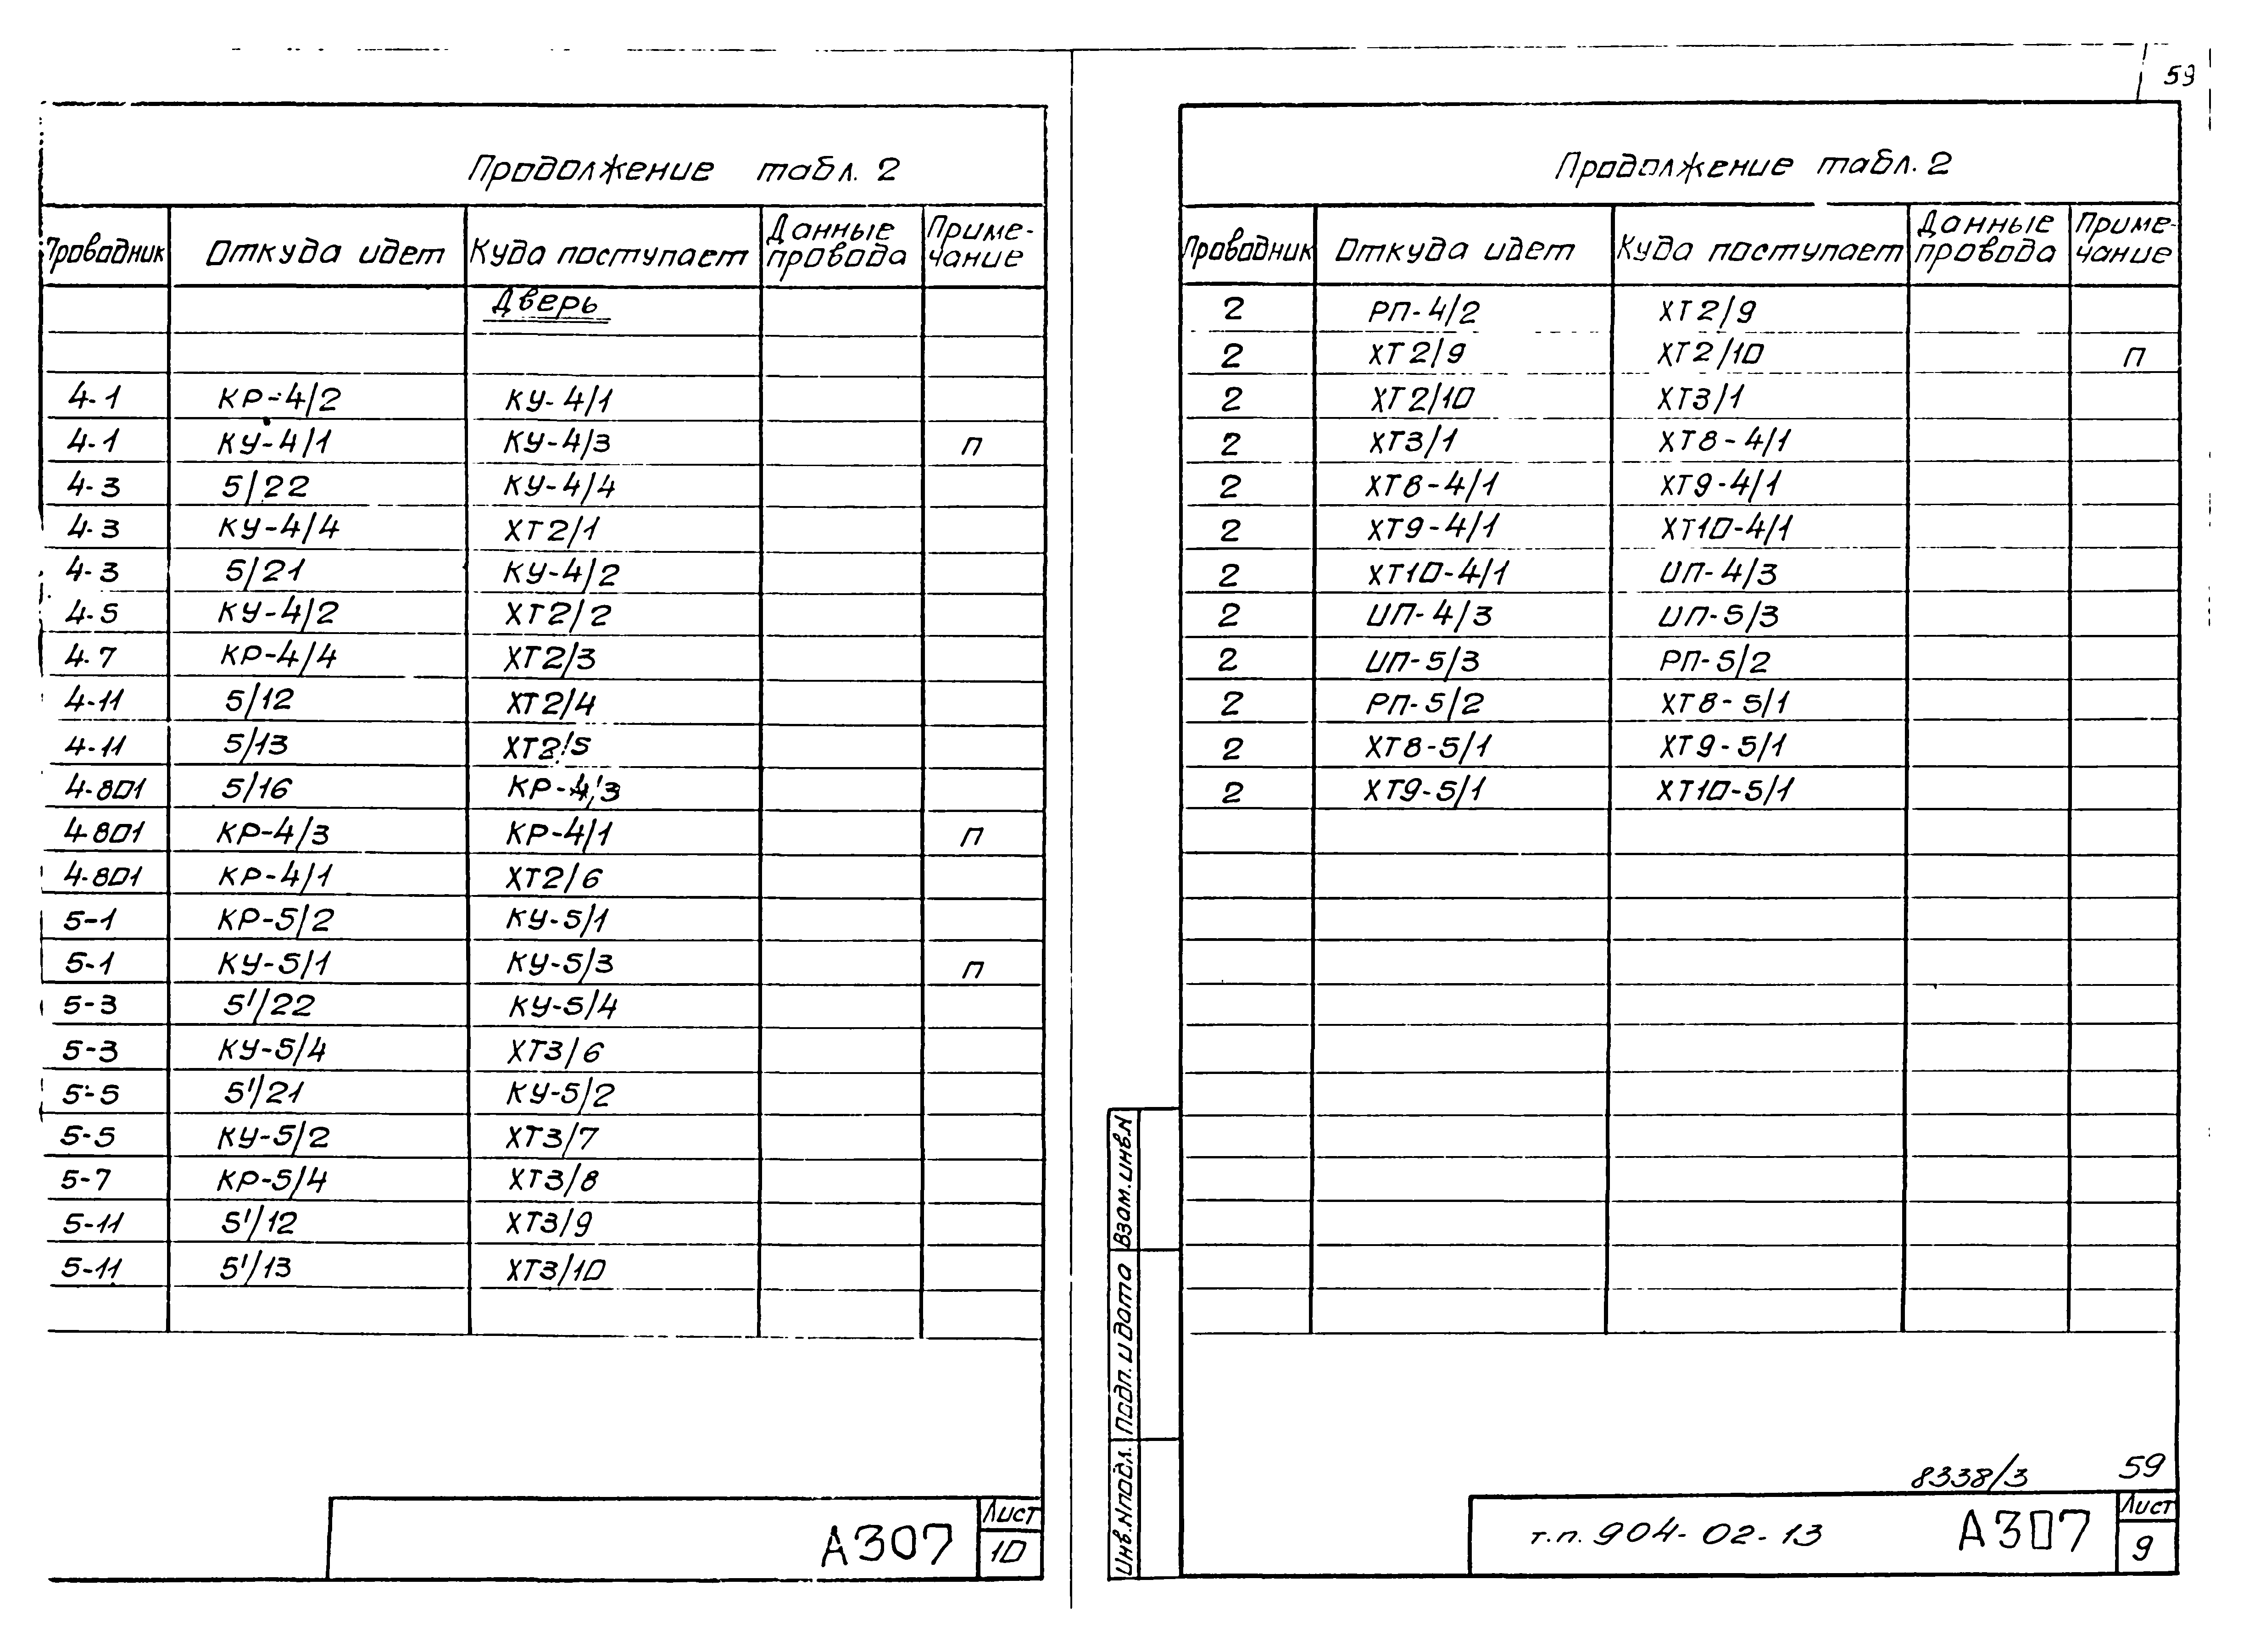 59
Продолжение табл. 2
Проводник Откуда идет Куда поступает Данные провода Приме-чание
Дверь
4-1 КР-4/2 КУ-4/1
4-1 КУ-4/1 КУ-4/3 П
4-3 5/22 КУ-4/4
4-3 КУ-4/4 ХТ2/1
4-3 5/21 КУ-4/2
4-5 КУ-4/2 ХТ2/2
4-7 КР-4/4 ХТ2/3
4-11 5/12 ХТ2/4
4-11 5/13 ХТ2/5
4-801 5/16 КР-4/3
4-801 КР-4/3 КР-4/1 П
4-801 КР-4/1 ХТ2/6
5-1 КР-5/2 КУ-5/1
5-1 КУ-5/1 КУ-5/3 П
5-3 5'/22 КУ-5/4
5-3 КУ-5/4 ХТ3/6
5-5 5'/21 КУ-5/2
5-5 КУ-5/2 ХТ3/7
5-7 КР-5/4 ХТ3/8
5-11 5'/12 ХТ3/9
5-11 5'/13 ХТ3/10
А307
Лист
10
Продолжение табл. 2
Проводник Откуда идет Куда поступает Данные провода Приме-чание
2 РП-4/2 ХТ2/9
2 ХТ2/9 ХТ2/10 П
2 ХТ2/10 ХТ3/1
2 ХТ3/1 ХТ8-4/1
2 ХТ8-4/1 ХТ9-4/1
2 ХТ9-4/1 ХТ10-4/1
2 ХТ10-4/1 ИП-4/3
2 ИП-4/3 ИП-5/3
2 ИП-5/3 РП-5/2
2 РП-5/2 ХТ8-5/1
2 ХТ8-5/1 ХТ9-5/1
2 ХТ9-5/1 ХТ10-5/1
Взам. инв. N
Подп. и дата
Инв. N подл.
8338/3 59
т.п. 904-02-13 А307
Лист
9